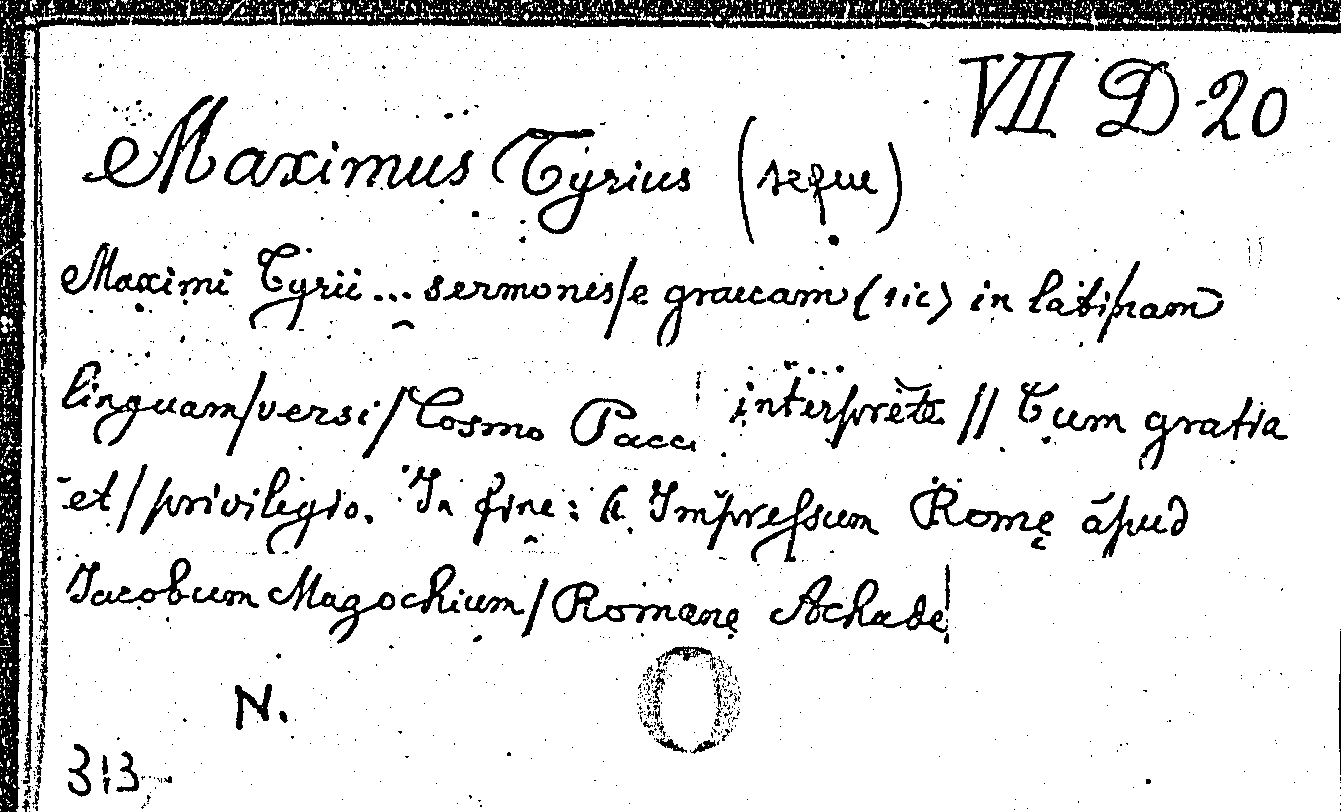 VII D 20
Maximus Tyrius (segue)
Maximi Tyrii ... sermones/e graecam (sic) in lati/nam
linguam/versi/Cosmo Pacci interprete // Cum gratia
et/privilegio. In fine: ( Impressum Romę apud
Jacobum Mazochium/Romanę Achade|
N.
313